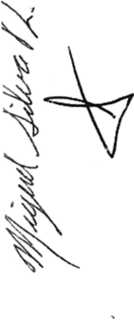 Miguel Silva R.